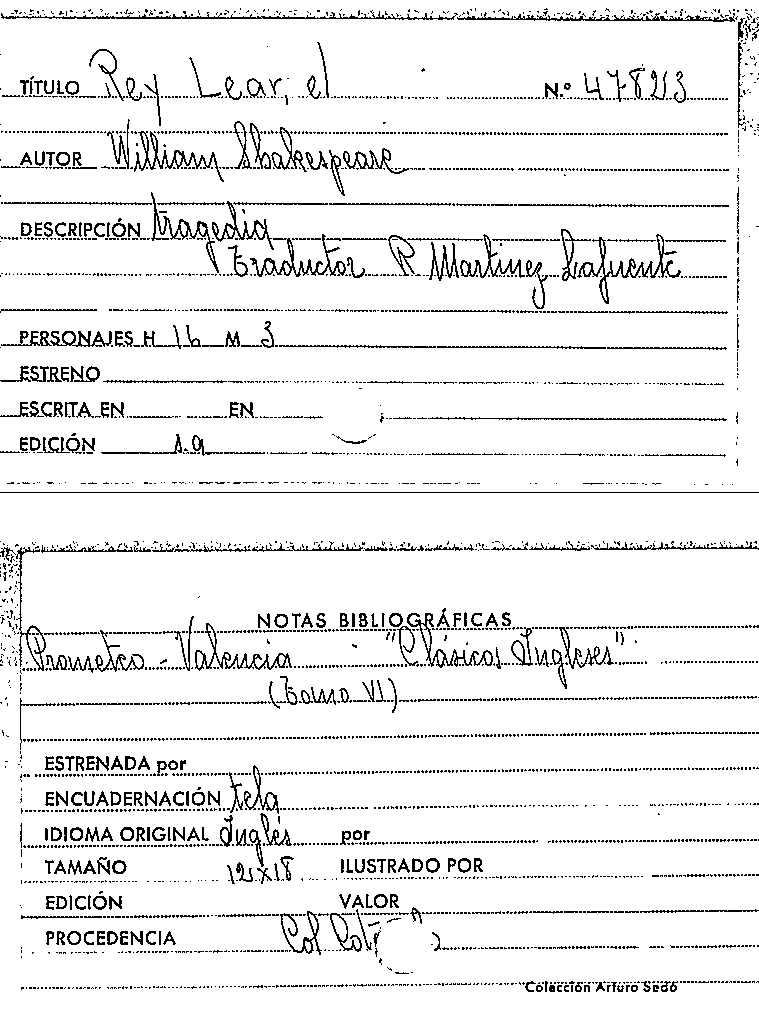 TÍTULO Rey Lear, el N.º 478213
AUTOR William Shakespeare
DESCRIPCIÓN tragedia
Traductor R Martinez Lafuente
PERSONAJES H 16 M 3
ESTRENO
ESCRITA EN EN
EDICIÓN s.a
NOTAS BIBLIOGRÁFICAS
Prometeo - Valencia "Clásicos Ingleses"
(Tomo VI)
ESTRENADA por
ENCUADERNACIÓN tela
IDIOMA ORIGINAL Inglés por
TAMAÑO 12x18 ILUSTRADO POR
EDICIÓN VALOR
PROCEDENCIA Col
Colección Arturo Sedó